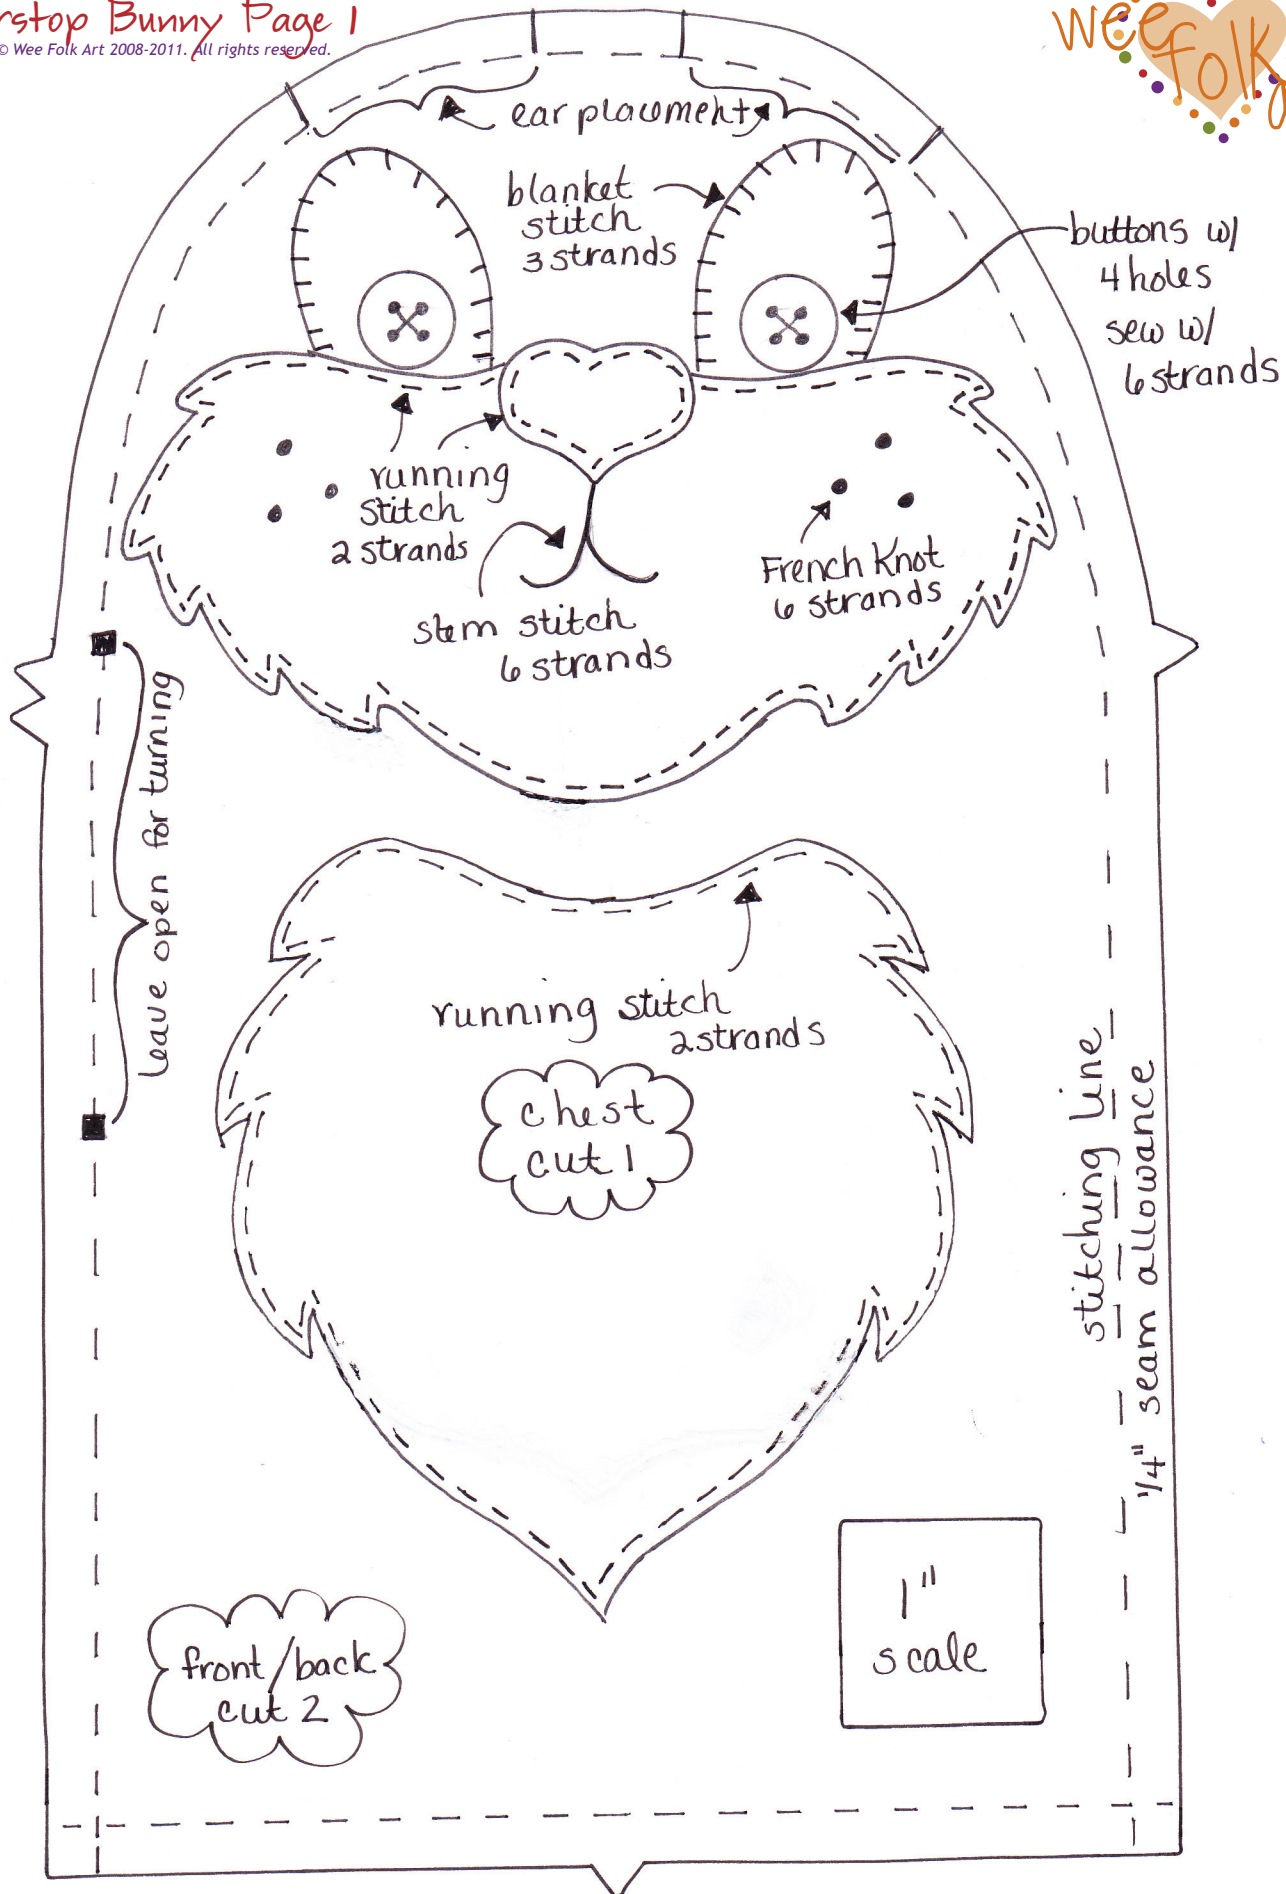 rstop Bunny Page 1
© Wee Folk Art 2008-2011. All rights reserved.
wee
folk
ear placement
blanket
stitch
3 strands
buttons w/
4 holes
sew w/
6 strands
running
stitch
2 strands
French Knot
6 strands
stem stitch
6 strands
leave open for turning
running stitch
2 strands
chest
cut 1
stitching line
1/4" seam allowance
1"
scale
front/back
cut 2